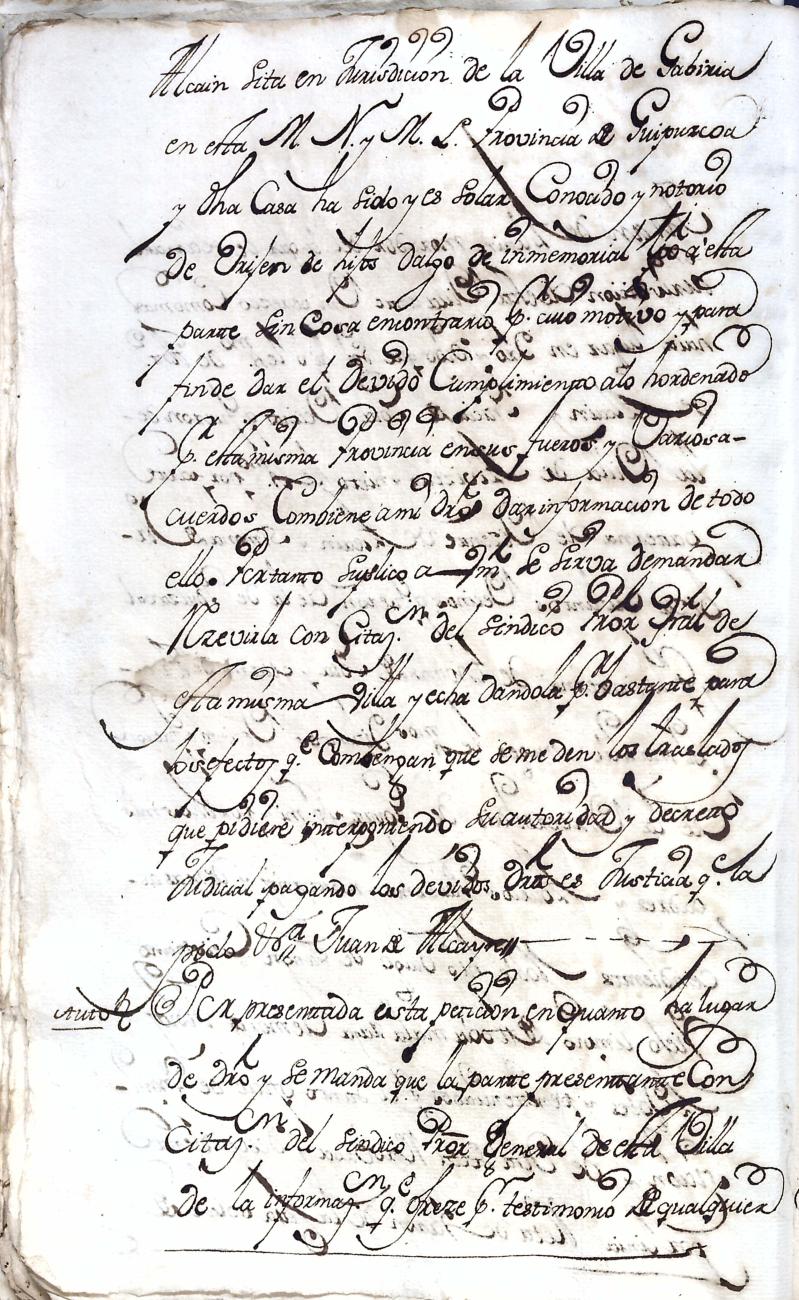 Alcain sita en Jurisdicion de la Villa de Gabiria
en esta M. N. y M. L. Provincia de Guipuzcoa
y dha Casa ha sido y es solar Conocido y notorio
de Orijen de hijos dalgo de inmemorial tpo a esta
parte sin Cosa encontrario pr. cuio motivo y para
fin de dar el devido Cumplimiento alo hordenado
pr. esta misma Provincia en sus fueros y Varios a-
cuerdos Combiene a mi dro dar informacion de todo
ello. Portanto suplico a Vm se sirva demandar
Rrevirla con Citazn. del sindico Pror Gral de
esta misma Villa y echa dandola pr bastante para
los efectos qe Combengan que se me den los traslados
que pidiere interponiendo su autoridad y decreto
Judicial pagando los devidos dros es Justicia qe la
pido Juan de Alcayn
Auto Por presentada esta peticion en quanto ha lugar
de dro y se manda que la parte presentante Con
Citazn. del sindico Pror General de esta Villa
de la informazn qe ofreze pr. testimonio de qualquier